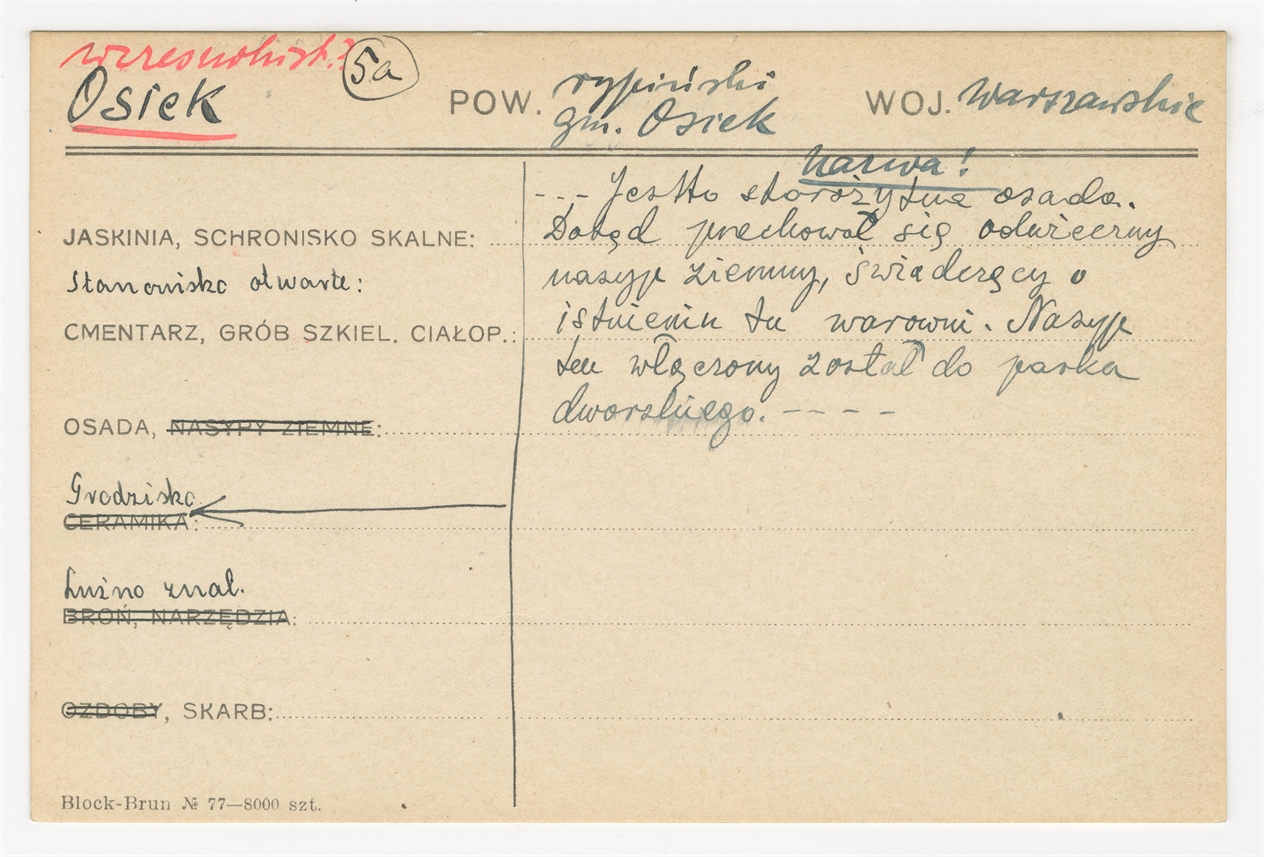 wczesnohist.?
Osiek
5a
POW. rypiński
gm. Osiek
WOJ. Warszawskie
Nazwa!
--- Jestto starożytna osada.
JASKINIA, SCHRONISKO SKALNE:
Dotąd przechował się odwieczny
Stanowisko otwarte:
nasyp ziemny, świadczący o
CMENTARZ, GRÓB SZKIEL. CIAŁOP.:
istnieniu tu warowni. Nasyp
ten włączony został do parku
OSADA, NASYPY ZIEMNE:
dworskiego. ----
Grodzisko
CERAMIKA:
Luźno znal.
BROŃ, NARZĘDZIA:
OZDOBY, SKARB:
Block-Brun № 77—8000 szt.